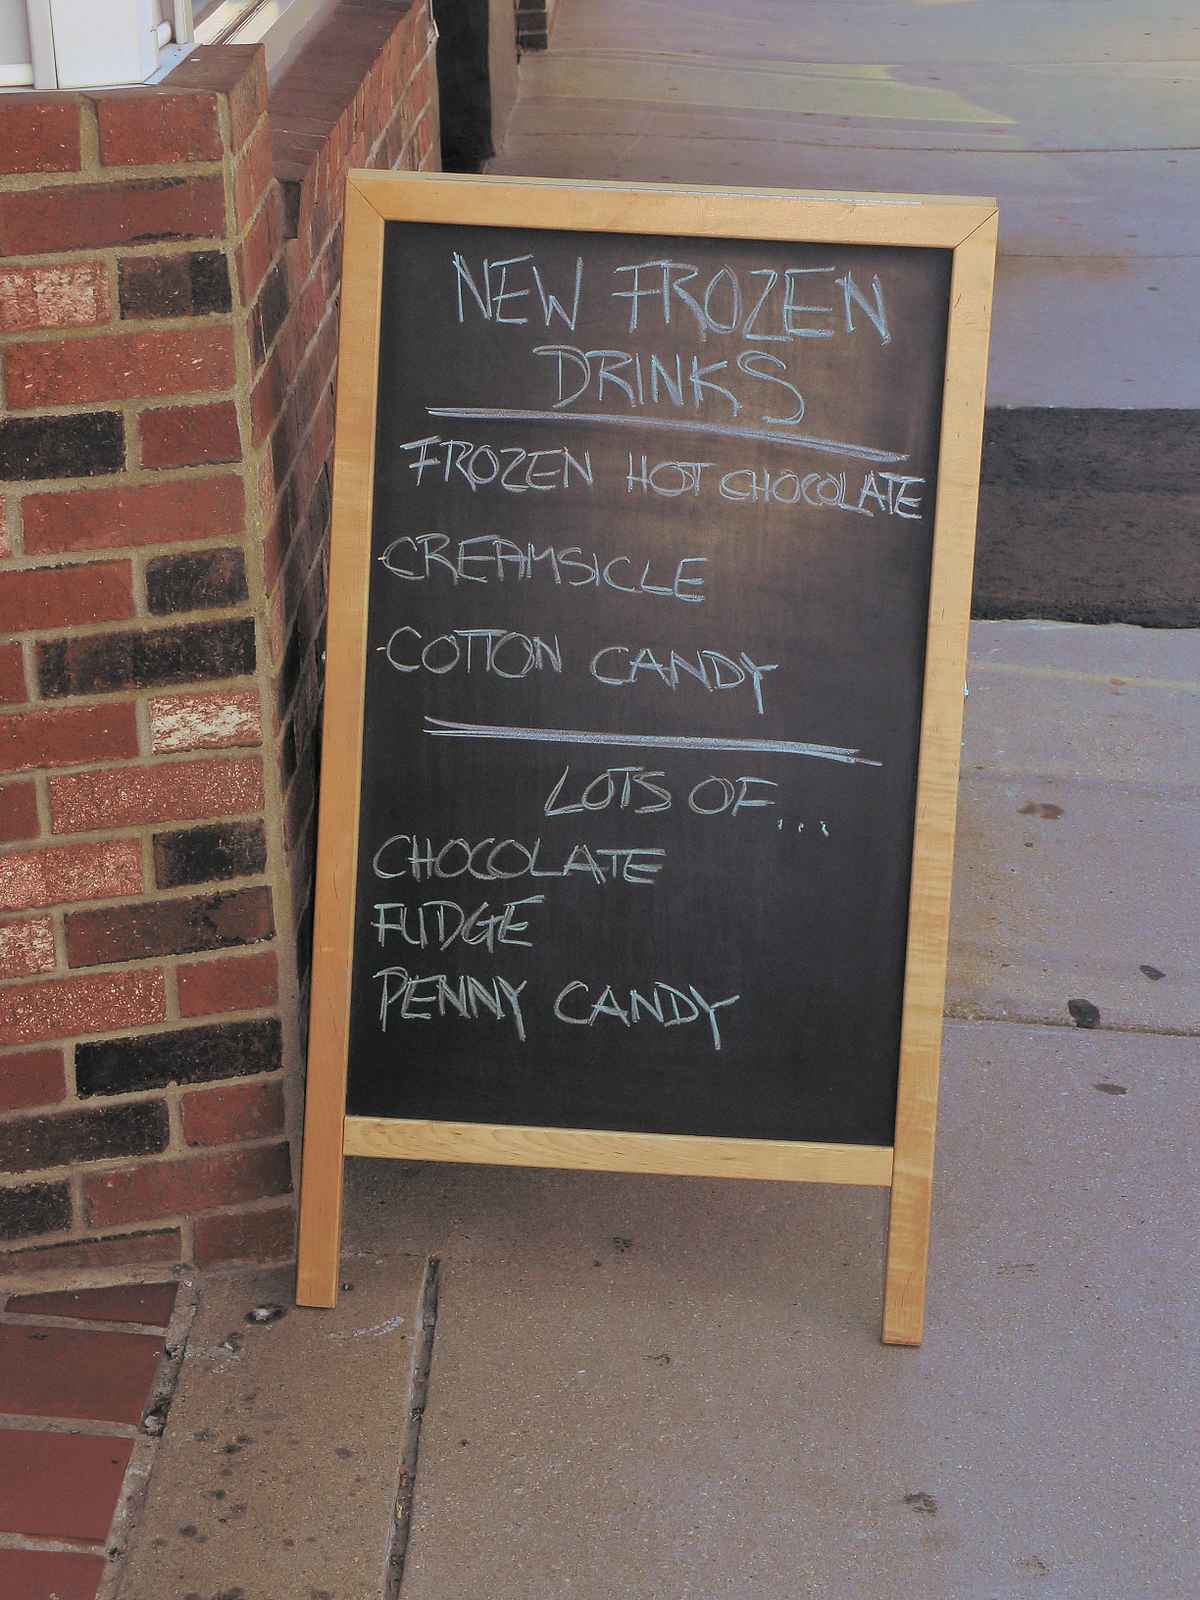 NEW FROZEN
DRINKS
FROZEN HOT CHOCOLATE
CREAMSICLE
COTTON CANDY
LOTS OF...
CHOCOLATE
FUDGE
PENNY CANDY